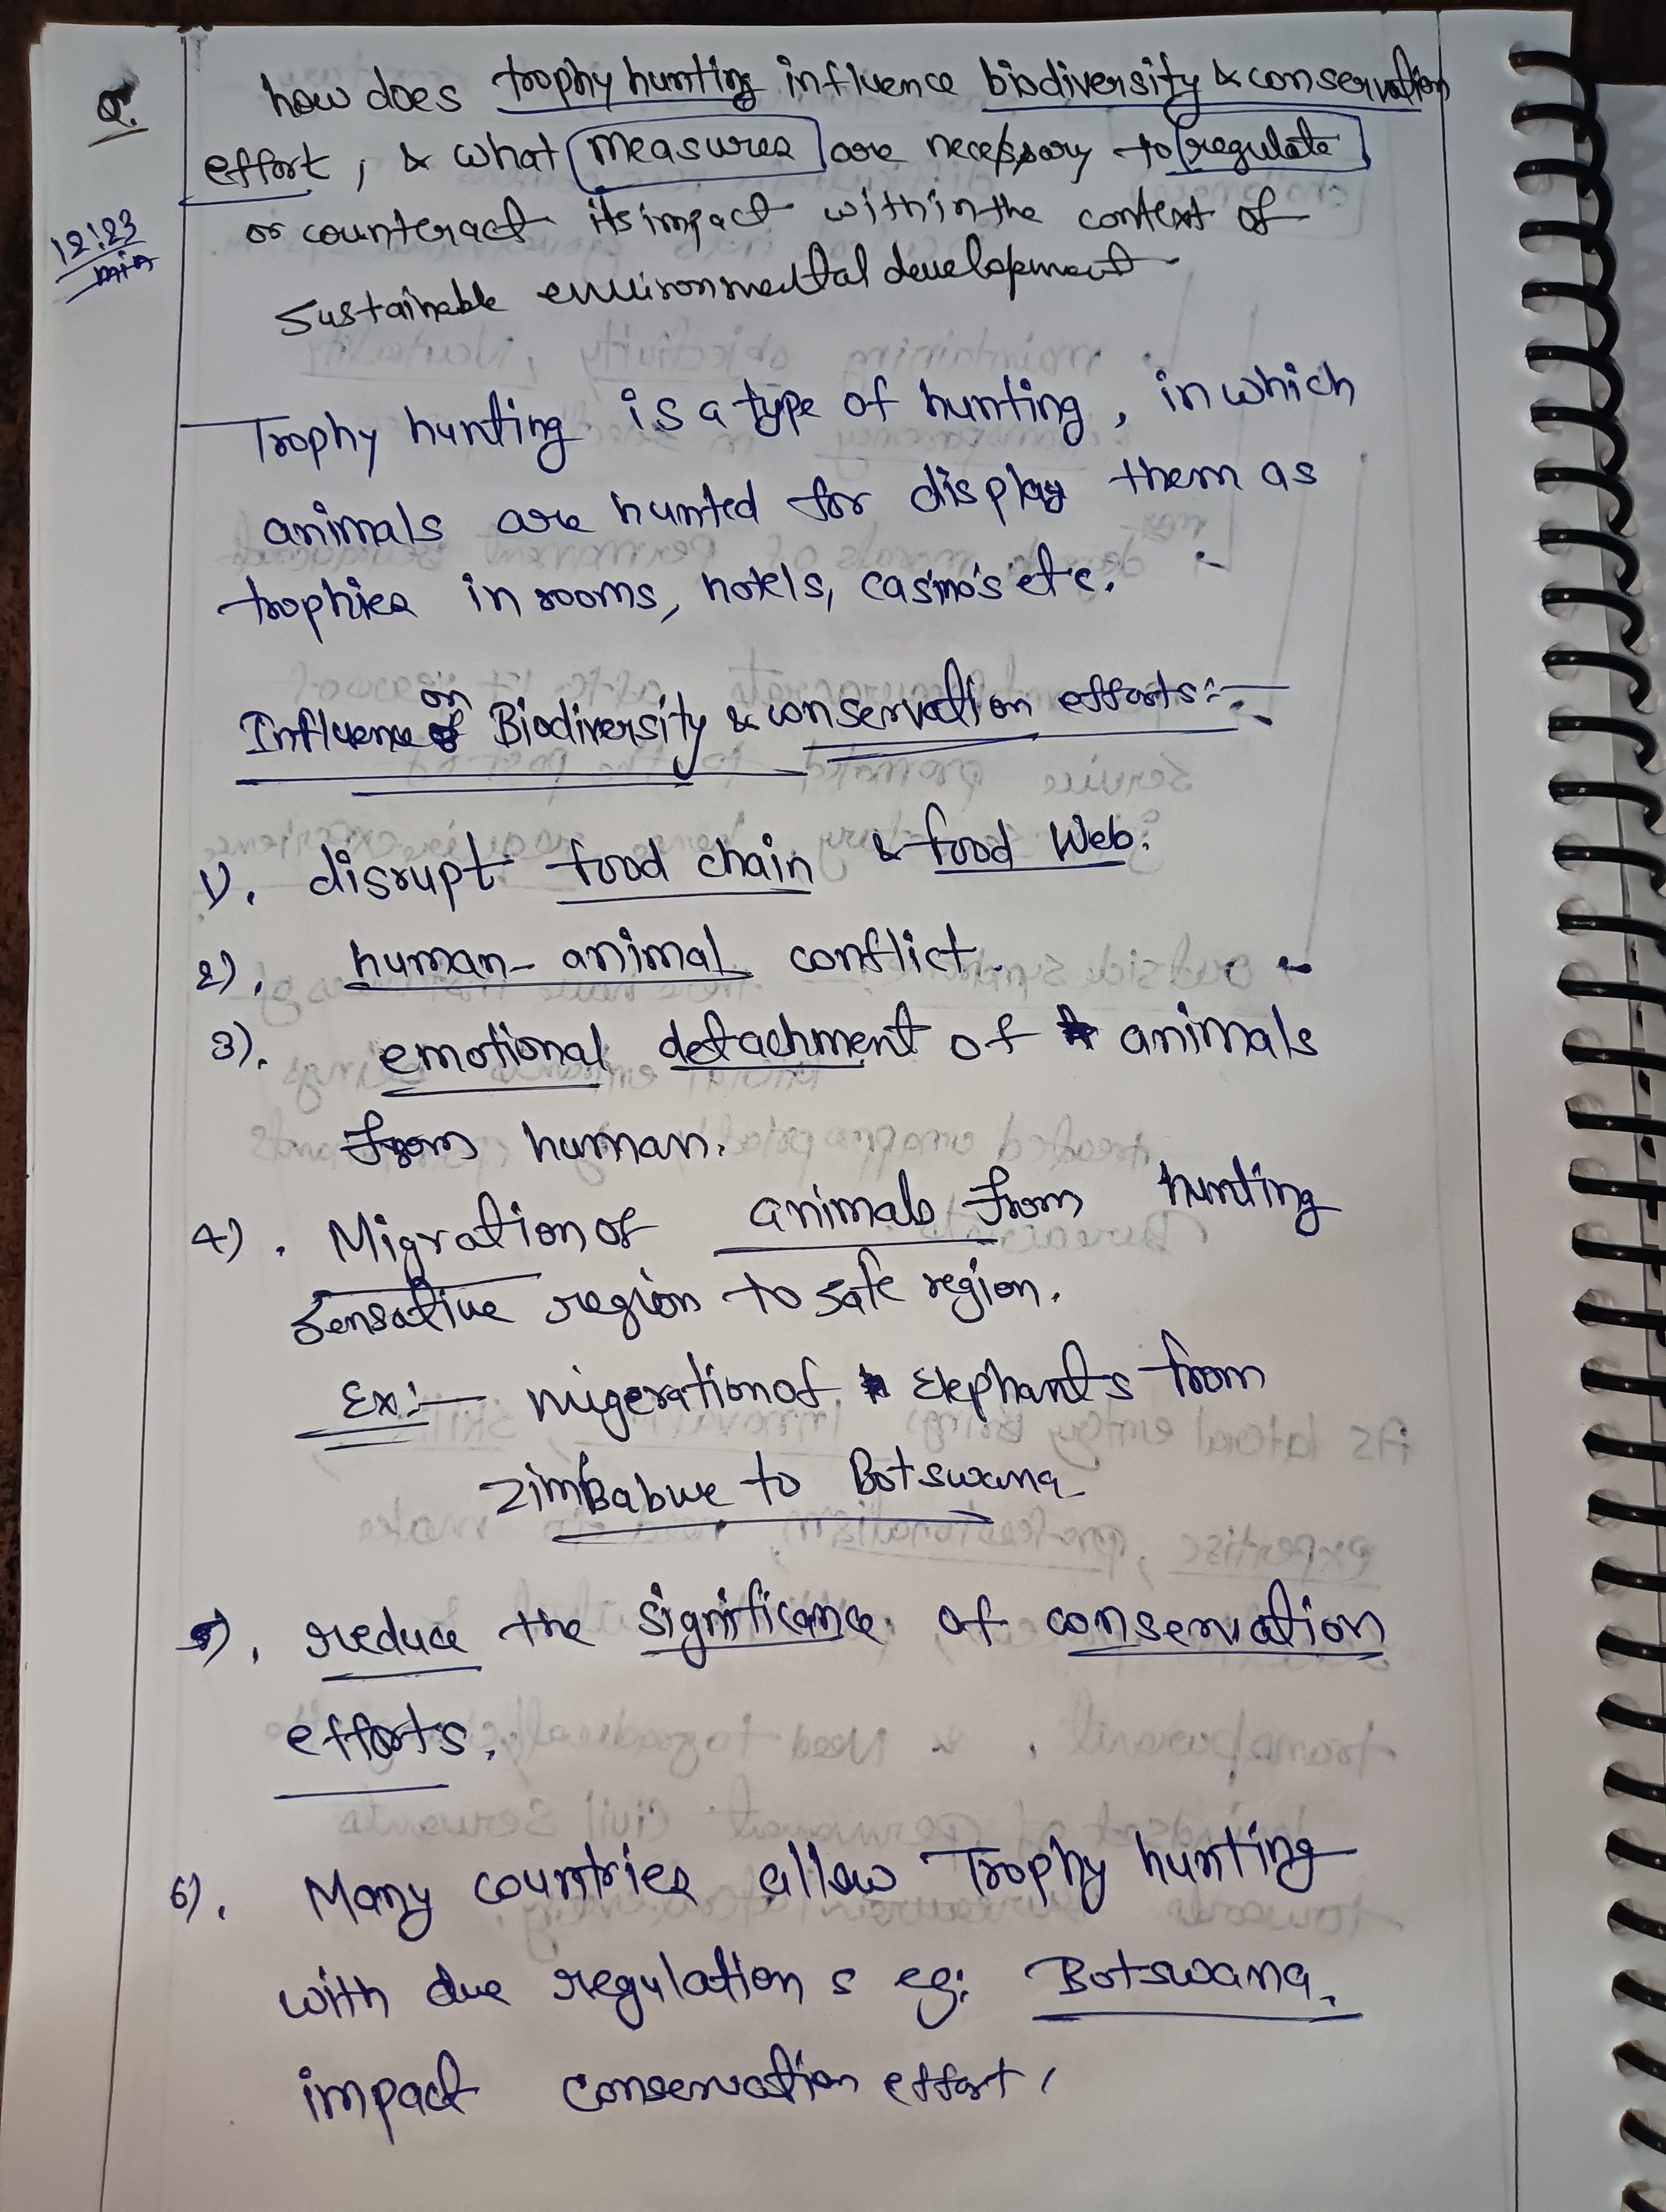 Q.
how does trophy hunting influence biodiversity & conservation
effort, & what measures are necessary to regulate
or counteract its impact within the context of
12:23
min
sustainable environmental development
Trophy hunting is a type of hunting, in which
animals are hunted for display them as
trophies in rooms, hotels, casino's etc.
Influence on Biodiversity & conservation efforts:-
1). disrupt food chain & food Web.
2). human-animal conflict.
3). emotional detachment of animals
from human.
4). Migration of animals from hunting
sensative region to safe region.
Ex:- migeration of Elephants from
Zimbabwe to Botswana
5). reduce the significance of conservation
efforts.
6). Many countries allow Trophy hunting
with due regulations eg: Botswana.
impact conservation effort.